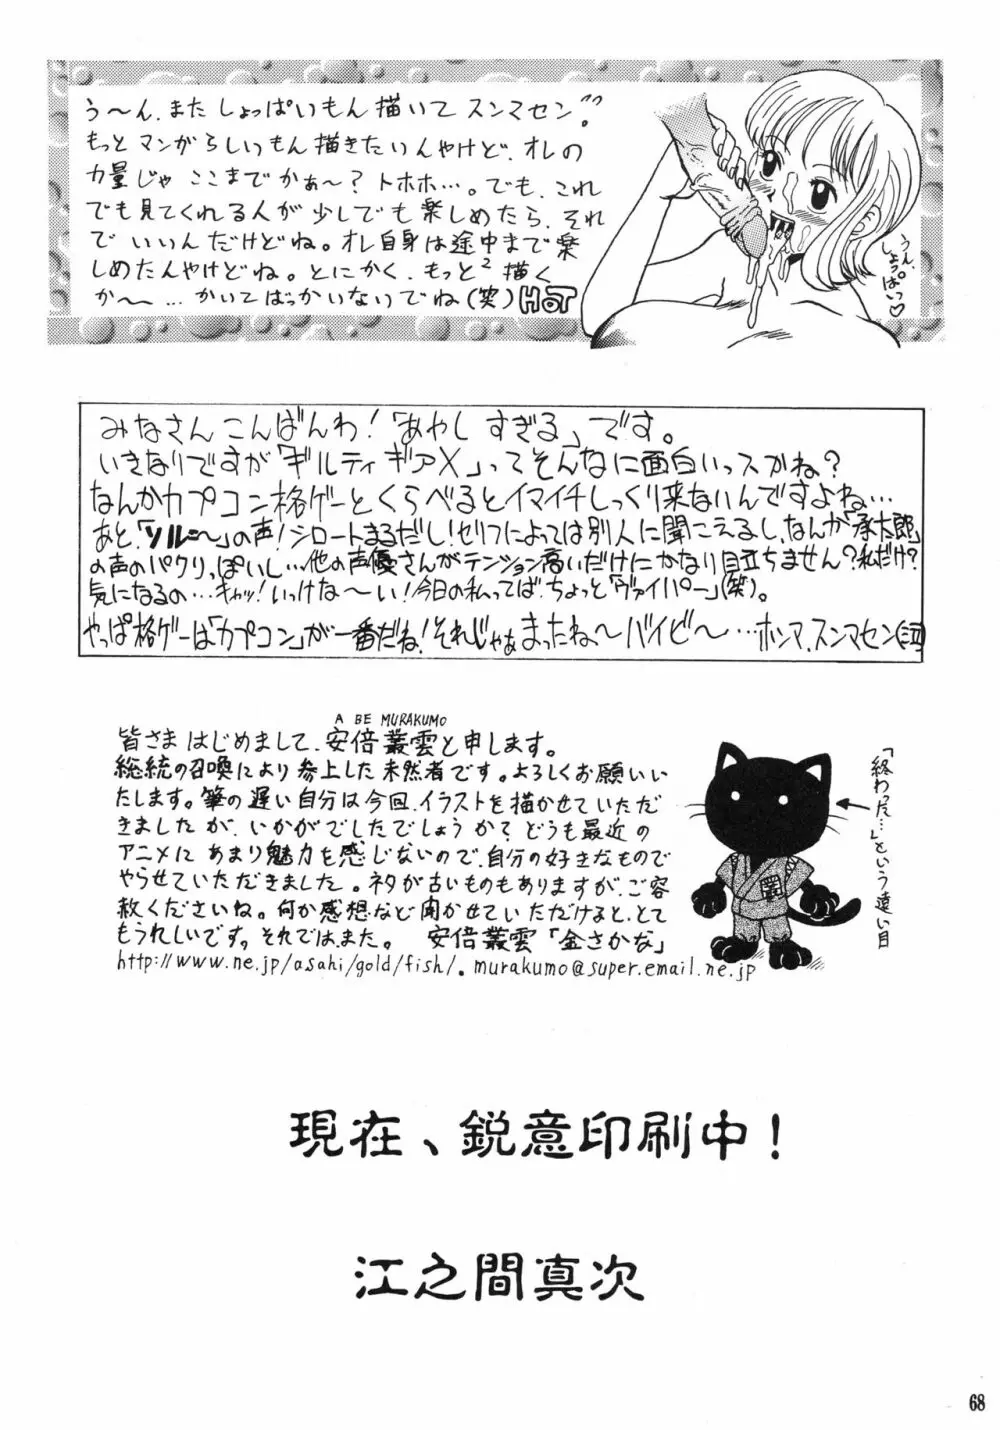 う〜ん、またしょっぱいもん描いてスンマセン。
もっとマンガらしいもん描きたいんやけど、オレの
力量じゃここまでかぁ〜？トホホ…。でも、これ
でも見てくれる人が少しでも楽しめたら、それ
でいいんだけどね。オレ自身は途中まで楽
しめたんやけどね。とにかく、もっと2描く
か〜…かいてはっかいないでね(笑) HOT
うん、
しょっぱいっ♡
みなさんこんばんわ！「あやしすぎる」です。
いきなりですが「ギルティギアX」ってそんなに面白いっスかね？
なんかカプコン格ゲーとくらべるとイマイチしっくり来ないんですよね…
あと、「ソル＝〜」の声！シロートまるだし！セリフによっては別人に聞こえるし、なんか「承太郎」
の声のパクリっぽいし…他の声優さんがテンション高いだけにかなり目立ちません？私だけ？
気になるの…キャッ！いっけな〜い！今日の私ってば、ちょっと「ヴァイパー」(笑)。
やっぱ格ゲーは「カプコン」が一番だね！それじゃぁまったね〜バイビ〜…ホンマ、スンマセン(泣)
A BE MURAKUMO
皆さまはじめまして、安倍叢雲と申します。
総統の召喚により参上した未然者です。よろしくお願いい
たします。筆の遅い自分は今回、イラストを描かせていただ
きましたが、いかがでしたでしょうか？どうも最近の
アニメにあまり魅力を感じないので、自分の好きなもので
やらせていただきました。ネタが古いものもありますが、ご容
赦くださいね。何か感想など聞かせていただけると、とて
もうれしいです。それでは、また。 安倍叢雲「金さかな」
http://www.ne.jp/asahi/gold/fish/. murakumo@super.email.ne.jp
「終わった…」という遠い目
現在、鋭意印刷中！
江之間真次
68